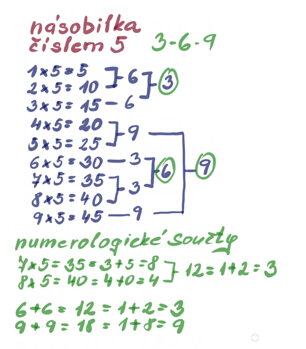 násobilka
číslem 5 3-6-9
1x5=5
2x5=10 6 3
3x5=15 - 6
4x5=20
5x5=25 9
6x5=30 - 3
7x5=35 6 9
8x5=40 3
9x5=45 - 9
numerologické součty
7x5=35=3+5=8
8x5=40=4+0=4 12=1+2=3
6+6=12=1+2=3
9+9=18=1+8=9